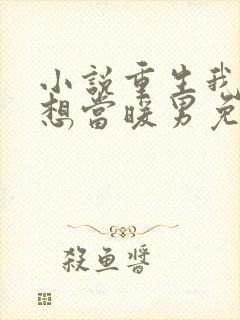 小説重生我
想當暖男免
殺魚醬